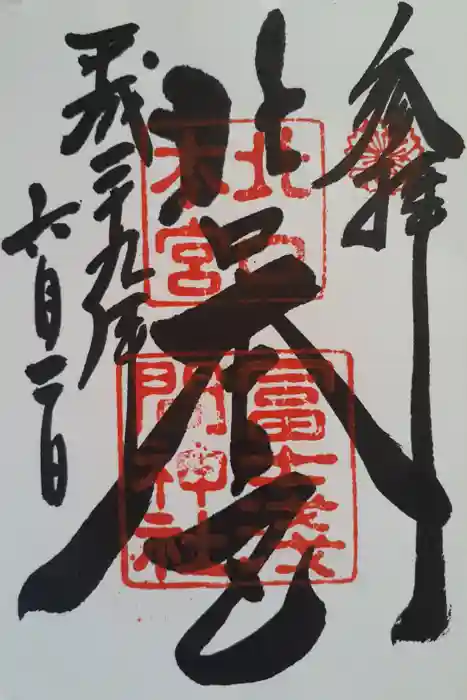 奉拝
北口本宮
平成二十九年
六月一日
北口
本宮
冨士淺
間神社